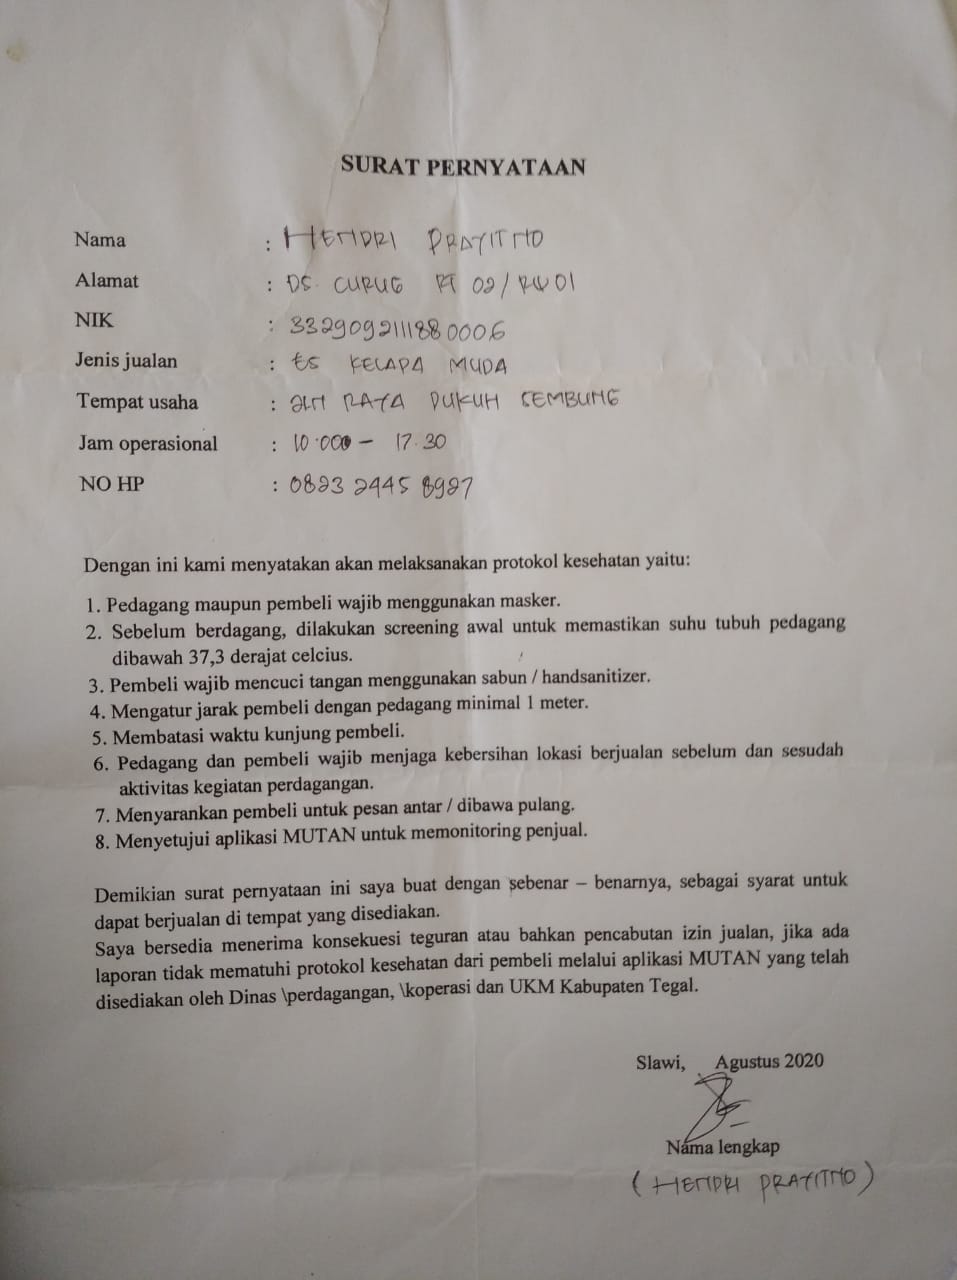 SURAT PERNYATAAN
Nama : HENDRI PRAYITNO
Alamat : DS. CURUG RT 02/RW 01
NIK : 3329092111880006
Jenis jualan : ES KELAPA MUDA
Tempat usaha : JLN RAYA DUKUH SEMBUNG
Jam operasional : 10.000 – 17.30
NO HP : 0823 2445 8927
Dengan ini kami menyatakan akan melaksanakan protokol kesehatan yaitu:
1. Pedagang maupun pembeli wajib menggunakan masker.
2. Sebelum berdagang, dilakukan screening awal untuk memastikan suhu tubuh pedagang
dibawah 37,3 derajat celcius.
3. Pembeli wajib mencuci tangan menggunakan sabun / handsanitizer.
4. Mengatur jarak pembeli dengan pedagang minimal 1 meter.
5. Membatasi waktu kunjung pembeli.
6. Pedagang dan pembeli wajib menjaga kebersihan lokasi berjualan sebelum dan sesudah
aktivitas kegiatan perdagangan.
7. Menyarankan pembeli untuk pesan antar / dibawa pulang.
8. Menyetujui aplikasi MUTAN untuk memonitoring penjual.
Demikian surat pernyataan ini saya buat dengan sebenar – benarnya, sebagai syarat untuk
dapat berjualan di tempat yang disediakan.
Saya bersedia menerima konsekuesi teguran atau bahkan pencabutan izin jualan, jika ada
laporan tidak mematuhi protokol kesehatan dari pembeli melalui aplikasi MUTAN yang telah
disediakan oleh Dinas \perdagangan, \koperasi dan UKM Kabupaten Tegal.
Slawi, Agustus 2020
Nama lengkap
( HENDRI PRAYITNO )